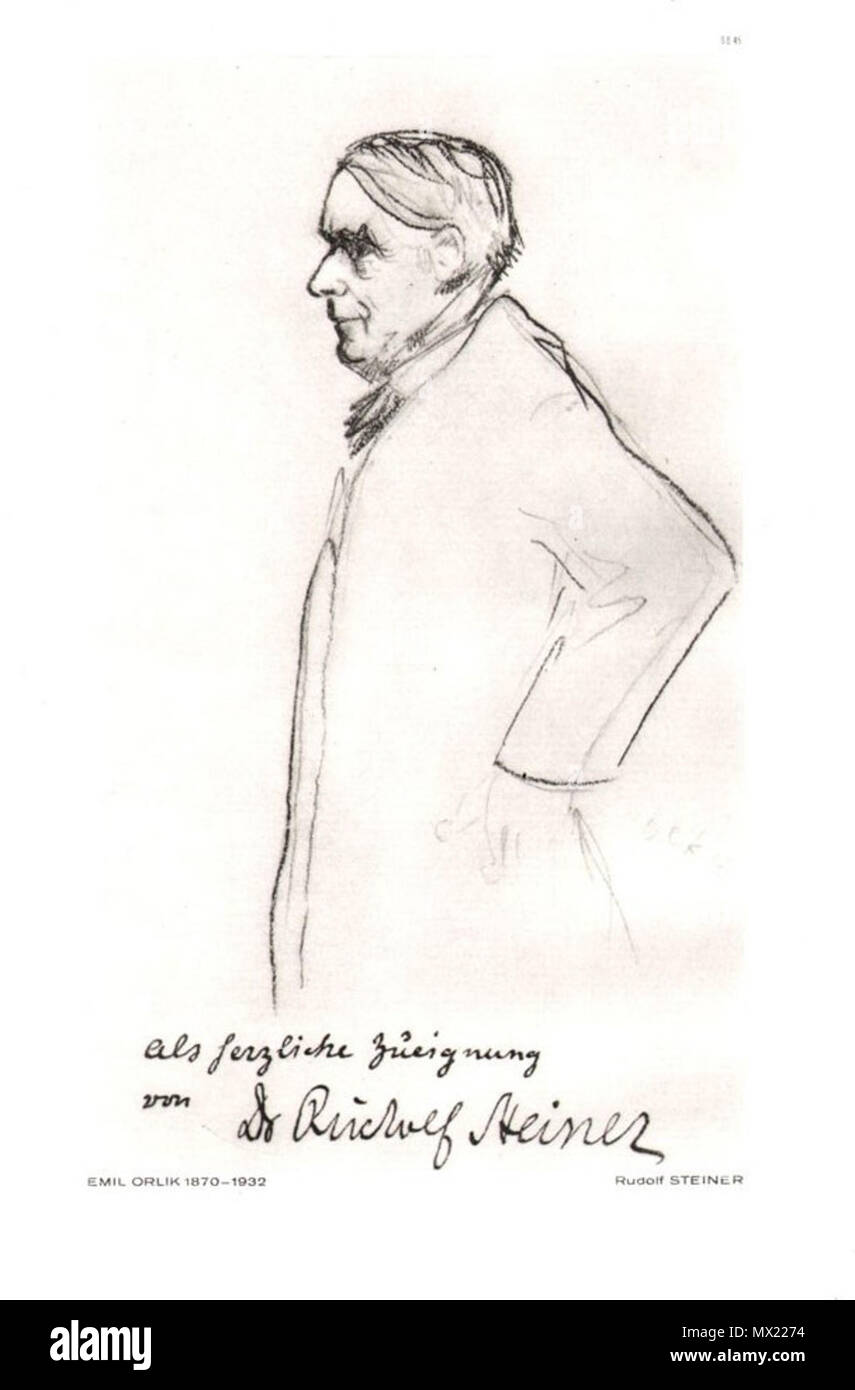 BB 45
als herzliche Zueignung
von Dr Rudolf Steiner
EMIL ORLIK 1870–1932
Rudolf STEINER
a
alamy
Image ID: MX2274
www.alamy.com